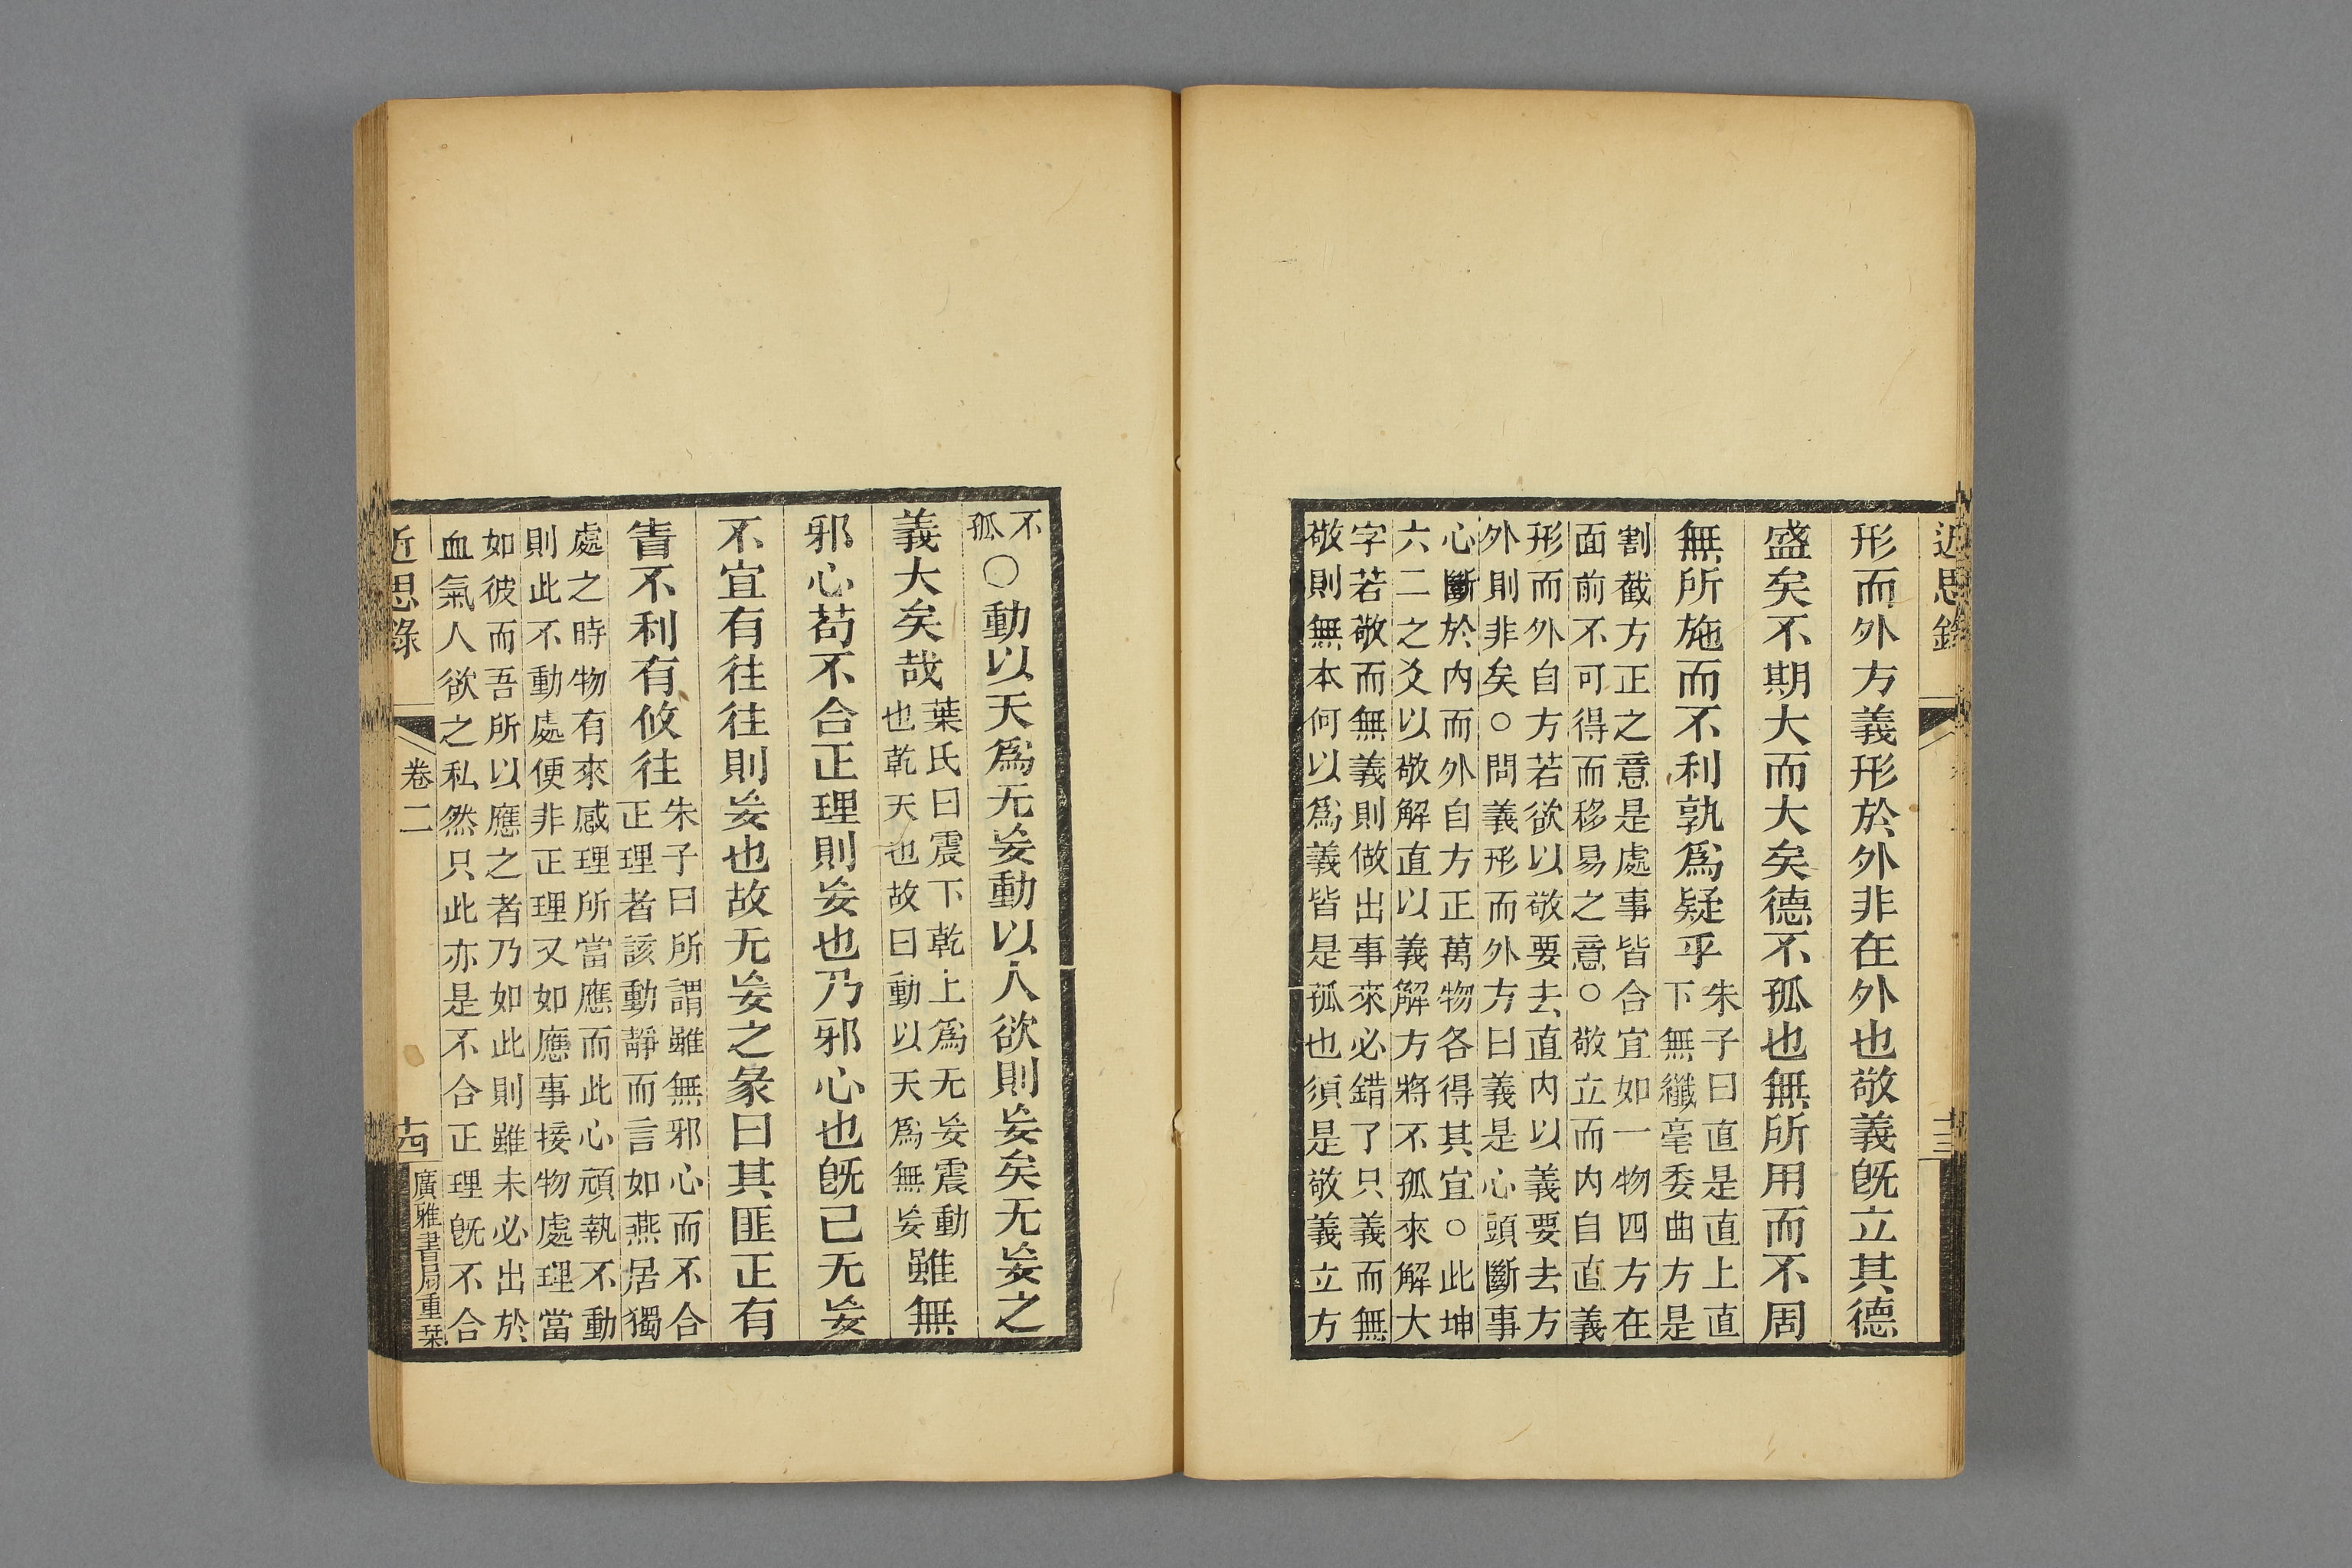 近思錄
十三
形而外方義形於外非在外也敬義旣立其德
盛矣不期大而大矣德不孤也無所用而不周
無所施而不利孰爲疑乎
朱子曰直是直上直
下無纖毫委曲方是
割截方正之意是處事皆合宜如一物四方在
面前不可得而移易之意○敬立而內自直義
形而外自方若欲以敬要去直內以義要去方
外則非矣○問義形而外方曰義是心頭斷事
心斷於內而外自方正萬物各得其宜○此坤
六二之爻以敬解直以義解方將不孤來解大
字若敬而無義則做出事來必錯了只義而無
敬則無本何以爲義皆是孤也須是敬義立方
不
孤
○動以天爲无妄動以人欲則妄矣无妄之
義大矣哉
葉氏曰震下乾上爲无妄震動
也乾天也故曰動以天爲無妄
雖無
邪心苟不合正理則妄也乃邪心也旣己无妄
不宜有往往則妄也故无妄之彖曰其匪正有
眚不利有攸往
朱子曰所謂雖無邪心而不合
正理者該動靜而言如燕居獨
處之時物有來感理所當應而此心頑執不動
則此不動處便非正理又如應事接物處理當
如彼而吾所以應之者乃如此則雖未必出於
血氣人欲之私然只此亦是不合正理旣不合
近思錄
卷二
十四
廣雅書局重栞